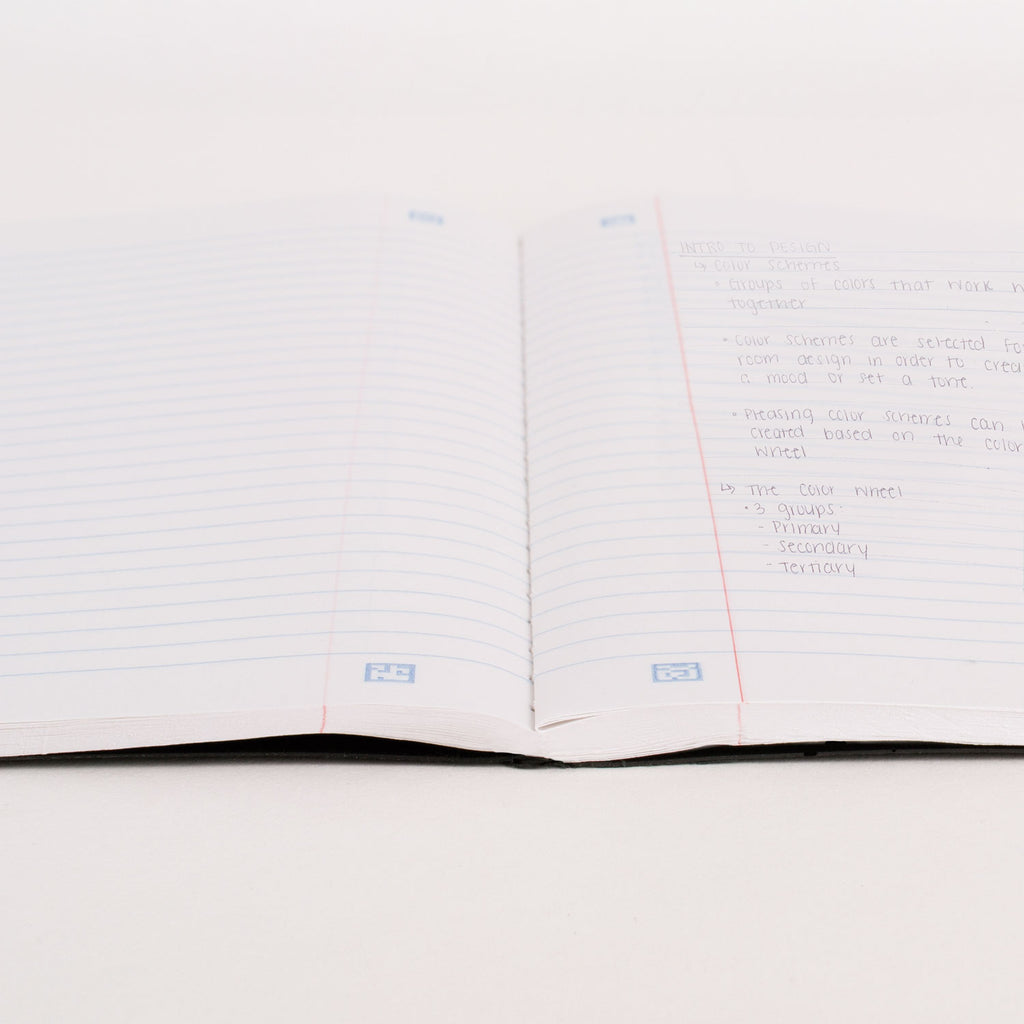 INTRO TO DESIGN
↳ COLOR SCHEMES
• Groups of colors that work
together
• Color schemes are selected
room design in order to
a mood or set a tone.
• Pleasing color schemes can
created based on the color
wheel
↳ The color wheel
• 3 groups:
- Primary
- Secondary
- Tertiary